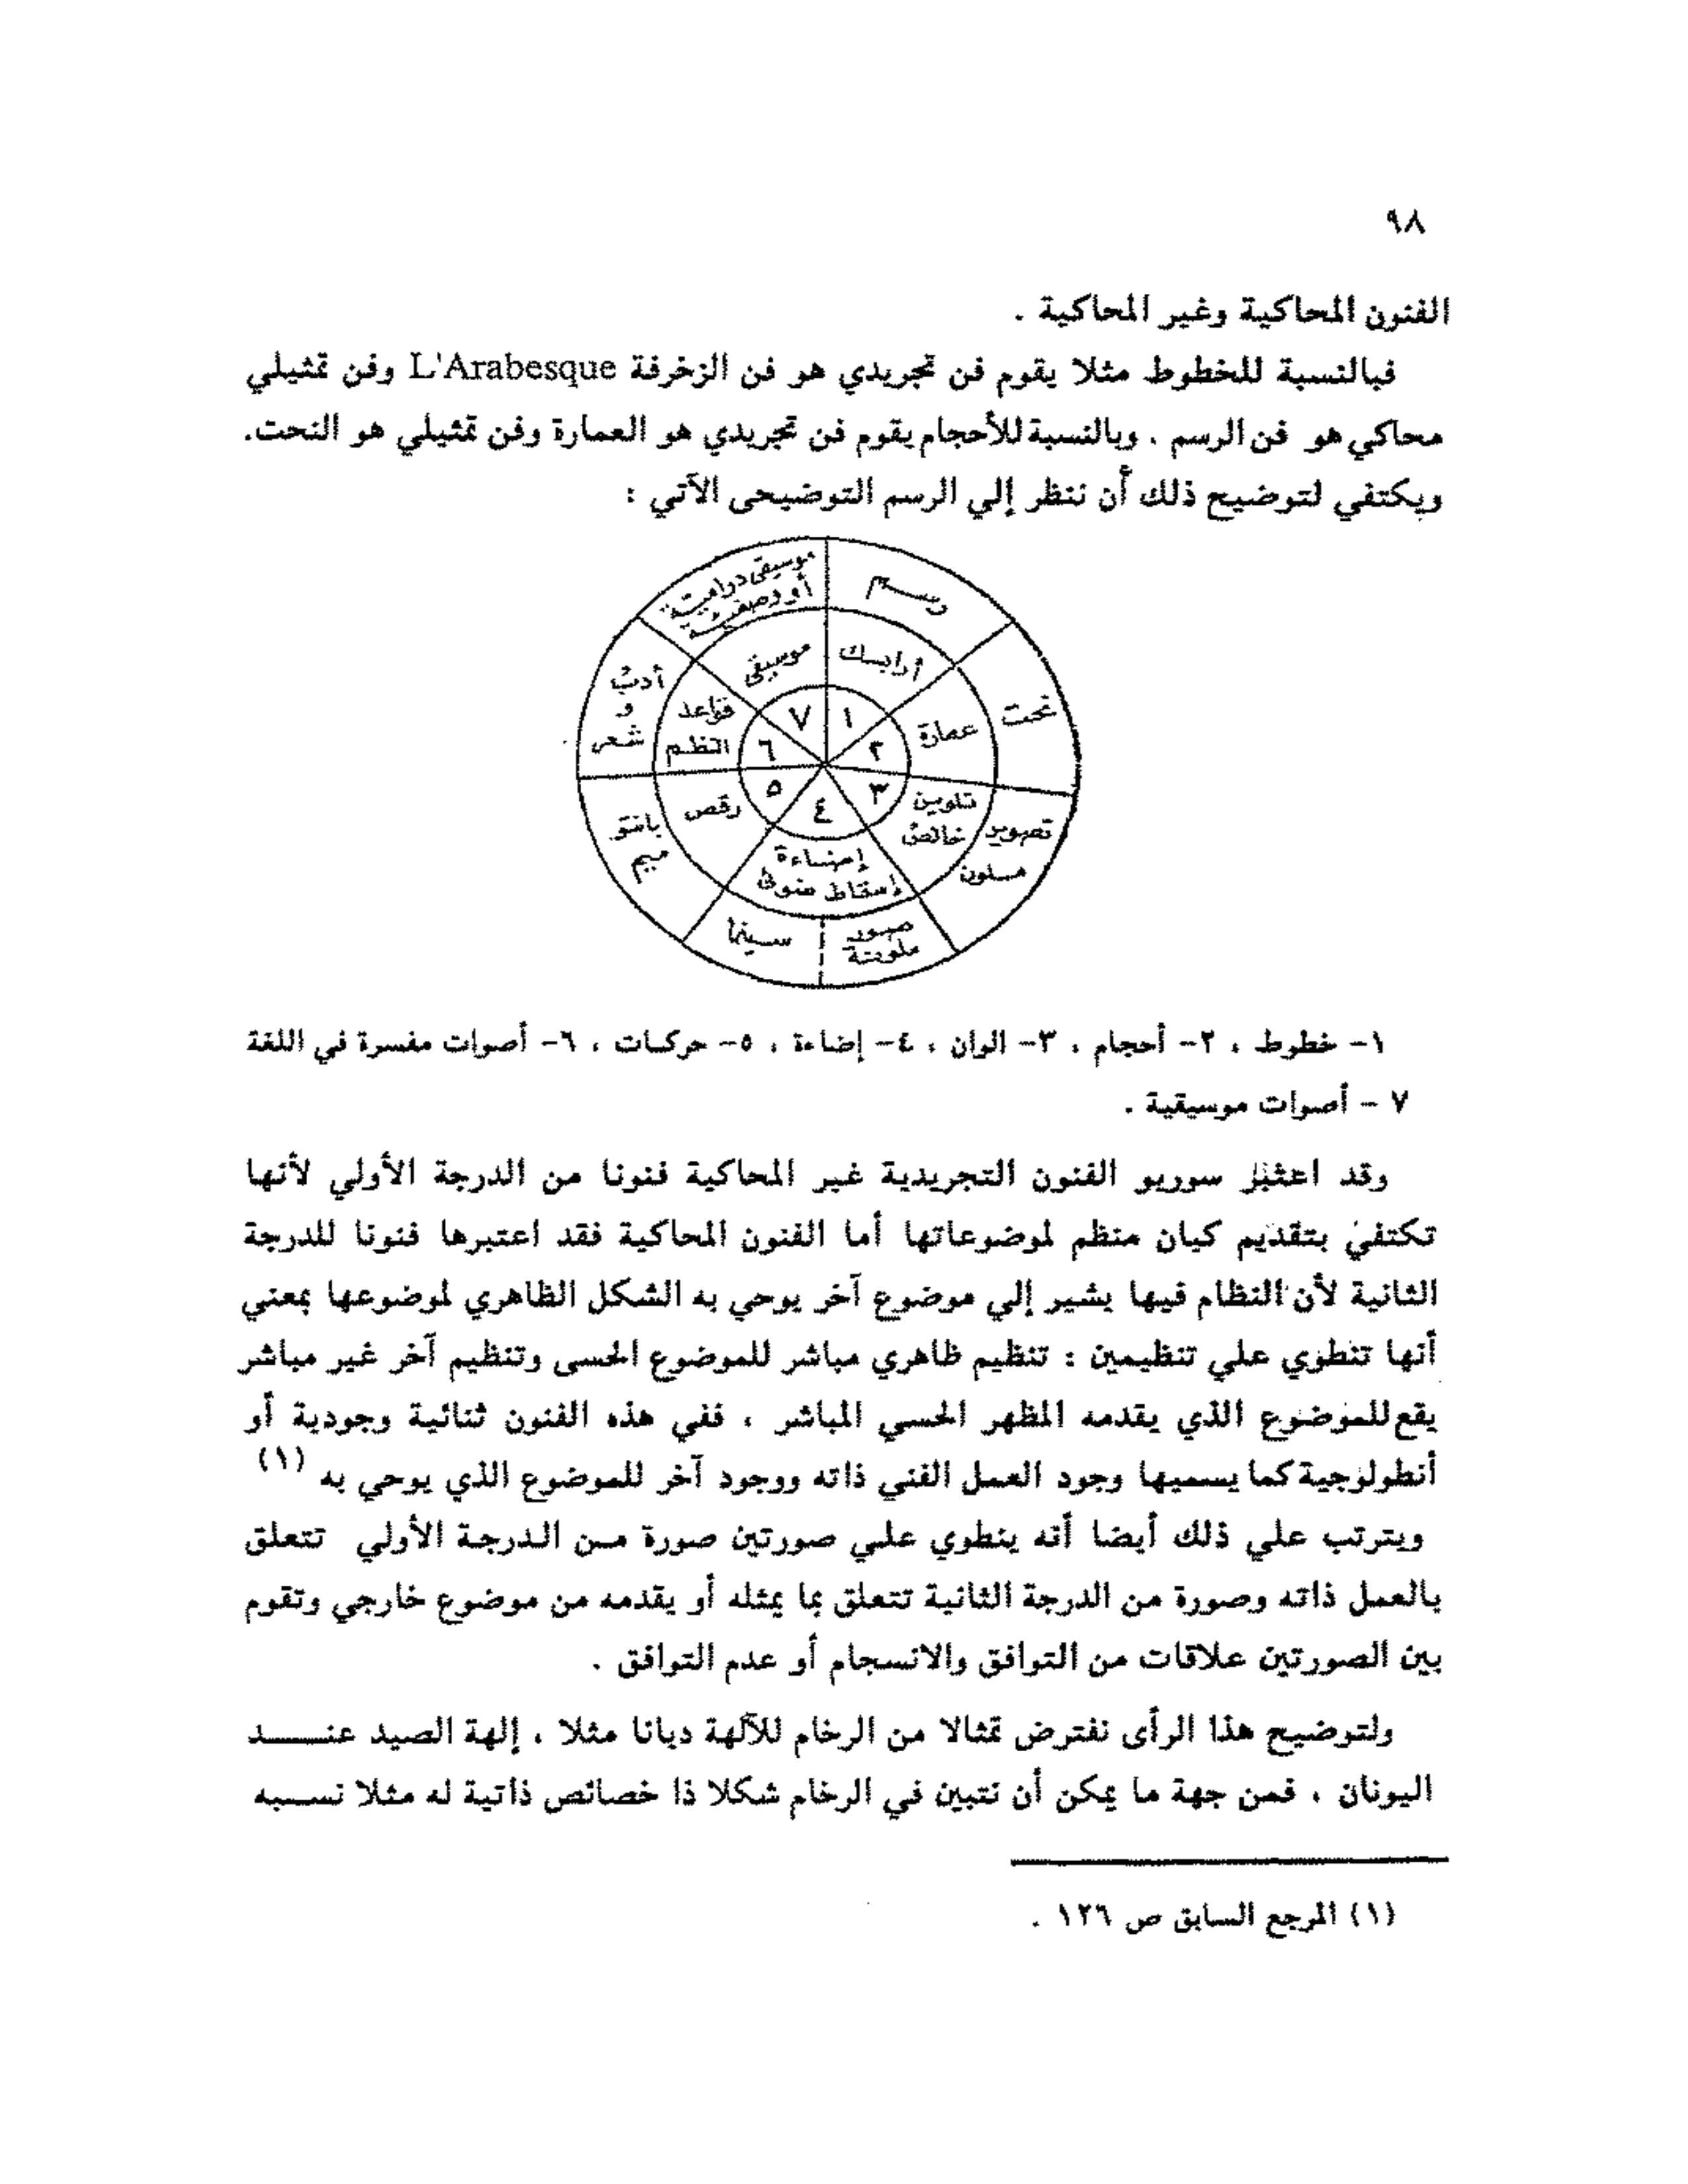 ٩٨
الفنون المحاكية وغير المحاكية .
فبالنسبة للخطوط مثلا يقوم فن تجريدي هو فن الزخرفة L'Arabesque وفن تمثيلي
محاكي هو فن الرسم . وبالنسبة للأحجام يقوم فن تجريدي هو العمارة وفن تمثيلي هو النحت.
ويكتفي لتوضيح ذلك أن ننظر إلي الرسم التوضيحى الآتي :
رسم
نحت
تصوير
ملون
صور
ملونة
سينما
بانتو
ميم
أدب
و
شعر
موسيقى درامية
أو وصفية
أرابسك
عمارة
تلوين
خالص
إضاءة
إسقاط ضوئى
رقص
قواعد
النظم
موسيقى
١
٢
٣
٤
٥
٦
٧
١- خطوط ، ٢- أحجام ، ٣- الوان ، ٤- إضاءة ، ٥- حركات ، ٦- أصوات مفسرة في اللغة
٧ - أصوات موسيقية .
وقد اعتبر سوريو الفنون التجريدية غير المحاكية فنونا من الدرجة الأولي لأنها
تكتفي بتقديم كيان منظم لموضوعاتها أما الفنون المحاكية فقد اعتبرها فنونا للدرجة
الثانية لأن النظام فيها يشير إلي موضوع آخر يوحي به الشكل الظاهري لموضوعها بمعني
أنها تنطوي علي تنظيمين : تنظيم ظاهري مباشر للموضوع الحسى وتنظيم آخر غير مباشر
يقع للموضوع الذي يقدمه المظهر الحسي المباشر ، ففي هذه الفنون ثنائية وجودية أو
أنطولوجية كما يسميها وجود العمل الفني ذاته ووجود آخر للموضوع الذي يوحي به (١)
ويترتب علي ذلك أيضا أنه ينطوي علي صورتين صورة من الدرجة الأولي تتعلق
بالعمل ذاته وصورة من الدرجة الثانية تتعلق بما يمثله أو يقدمه من موضوع خارجي وتقوم
بين الصورتين علاقات من التوافق والانسجام أو عدم التوافق .
ولتوضيح هذا الرأى نفترض تمثالا من الرخام للآلهة ديانا مثلا ، إلهة الصيد عنـــد
اليونان ، فمن جهة ما يمكن أن نتبين في الرخام شكلا ذا خصائص ذاتية له مثلا نســبه
(١) المرجع السابق ص ١٢٦ .